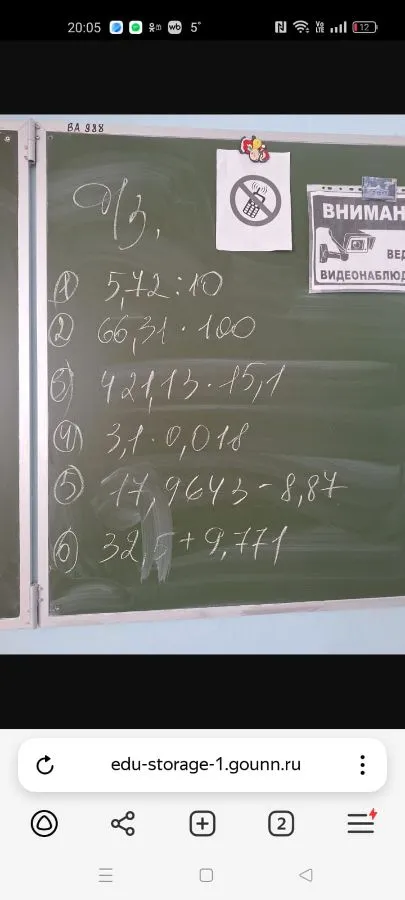 20:05 wb 5° 12
ВА 988
Ч/з.
ВНИМАН
ВЕД
ВИДЕОНАБЛЮД
① 5,72 : 10
② 66,31 · 100
③ 421,13 · 15,1
④ 3,1 · 0,018
⑤ 17,9643 - 8,87
⑥ 32,5 + 9,771
edu-storage-1.gounn.ru
2